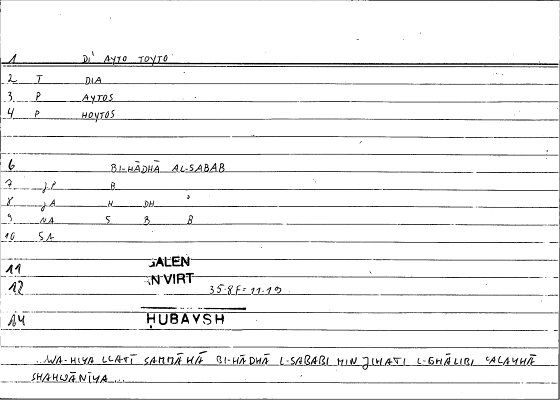 1 DI' AYTO TOYTO
2 T DIA
3 P AYTOS
4 P HOYTOS
6 BI-HĀDHĀ AL-SABAB
7 JP B
8 JA H DH
9 NA S B B
10 SA
11 GALEN
12 IN VIRT 35·8F=11·19
14 ḤUBAYSH
...WA-HIYA LLATĪ SAMMĀHĀ BI-HĀDHĀ L-SABABI MIN JIHATI L-GHĀLIBI ʿALAYHĀ
SHAHWĀNĪYA...